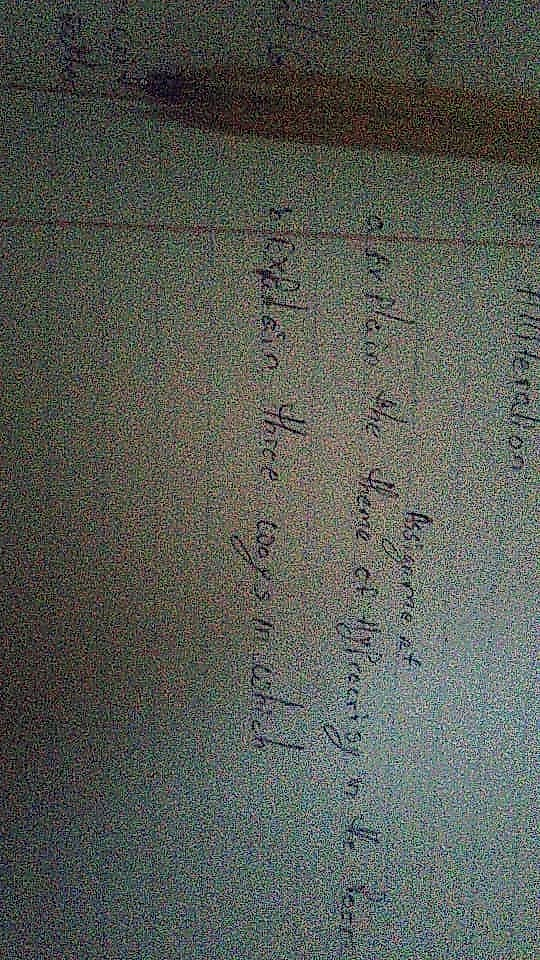 Alliteration
Assignment
a. Explain the theme of Hypocrisy in the Poem
b. Explain three ways in which